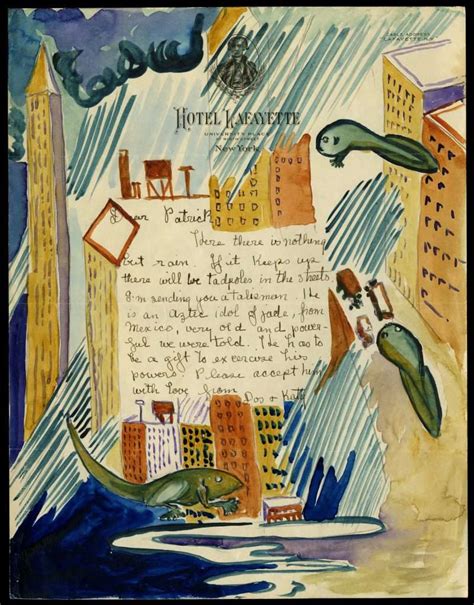 CABLE ADDRESS
"LAFAYETTE N.Y."
HOTEL LAFAYETTE
UNIVERSITY PLACE
New York.
Dear Patrick
Here there is nothing
but rain. If it keeps up
there will be tadpoles in the streets.
I'm sending you a talisman. He
is an Aztec idol of jade, from
Mexico, very old and power-
ful we were told. He has to
be a gift to excercise his
powers. Please accept him
with love from
Dos & Katy